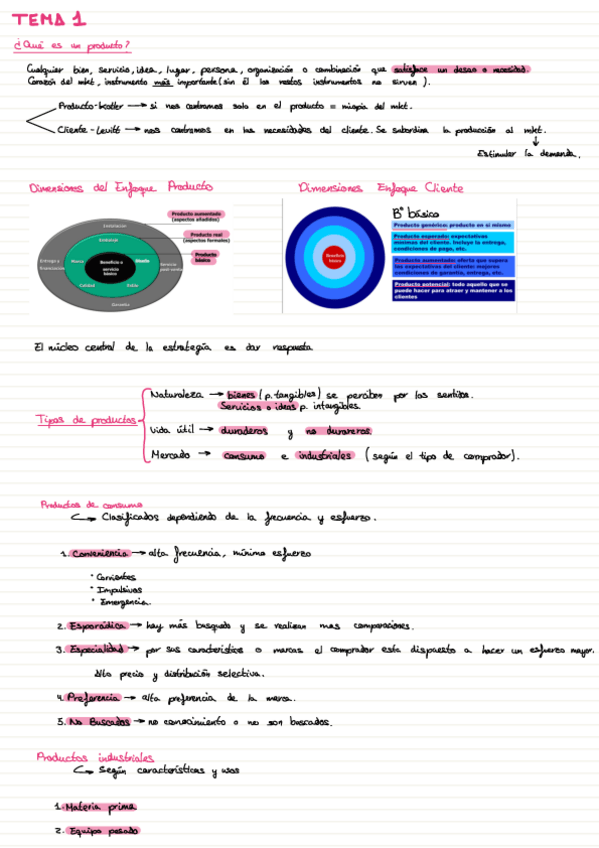 TEMA 1
¿Qué es un producto?
Cualquier bien, servicio, idea, lugar, persona, organización o combinación que satisface un deseo o necesidad.
Corazón del mkt, instrumento más importante (sin él los restos instrumentos no sirven).
Producto-Kotler → si nos centramos solo en el producto = miopía del mkt.
Cliente-Levitt → nos centramos en las necesidades del cliente. Se subordina la producción al mkt.
↓
Estimular la demanda.
Dimensiones del Enfoque Producto
Dimensiones Enfoque Cliente
Producto aumentado
(aspectos añadidos)
Producto real
(aspectos formales)
Producto
básico
Instalación
Embalaje
Entrega y
financiación
Marca
Beneficio o
servicio
básico
Diseño
Servicio
post-venta
Calidad
Estilo
Garantía
Beneficio
básico
Bº básico
Producto genérico: producto en sí mismo
Producto esperado: expectativas
mínimas del cliente. Incluye la entrega,
condiciones de pago, etc.
Producto aumentado: oferta que supera
las expectativas del cliente: mejores
condiciones de garantía, entrega, etc.
Producto potencial: todo aquello que se
puede hacer para atraer y mantener a los
clientes
El núcleo central de la estrategia es dar respuesta
Tipos de productos
Naturaleza → bienes (p. tangibles) se perciben por los sentidos.
Servicios o ideas p. intangibles.
Vida útil → duraderos y no duraderos
Mercado → consumo e industriales (según el tipo de comprador).
Productos de consumo
↪ Clasificados dependiendo de la frecuencia y esfuerzo.
1. Conveniencia → alta frecuencia, mínimo esfuerzo
• Corrientes
• Impulsivos
• Emergencia.
2. Esporádica → hay más busqueda y se realizan mas comparaciones.
3. Especialidad → por sus caracteristics o marcas el comprador esta dispuesto a hacer un esfuerzo mayor.
Alto precio y distribución selectiva.
4. Preferencia → alta preferencia de la marca.
5. No Buscados → no conocimiento o no son buscados.
Productos industriales
↪ Según características y usos
1. Materia prima
2. Equipo pesado